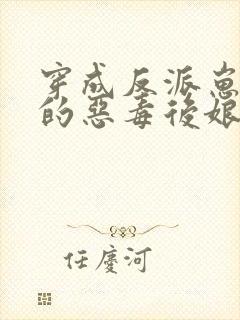 穿成反派崽
的惡毒後娘
任慶河